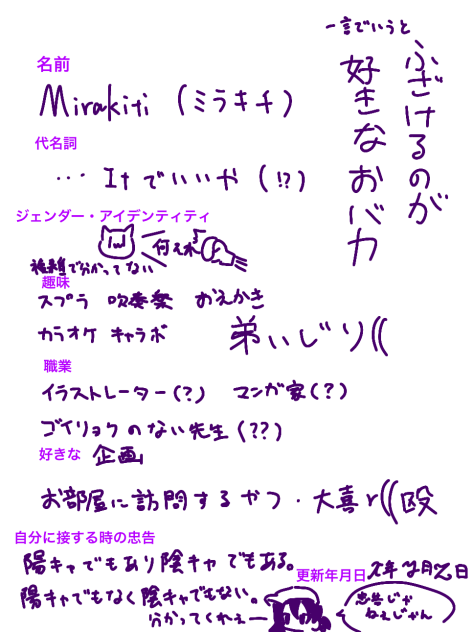 一言でいうと
ふざけるのが
好きなおバカ
名前
Mirakiti (ミラキチ)
代名詞
… Itでいいや (!?)
ジェンダー・アイデンティティ
何それ
複雑で分かってない
趣味
スプラ 吹奏楽 おえかき
カラオケ キャラボ 弟いじり((
職業
イラストレーター(?) マンガ家(?)
ゴイリョクのない先生(??)
好きな 企画
お部屋に訪問するやつ・大喜r((殴
自分に接する時の忠告
陽キャでもあり陰キャでもある。
陽キャでもなく陰キャでもない。
分かってくれぇー
更新年月日 x年y月z日
忠告じゃ
ねぇじゃん